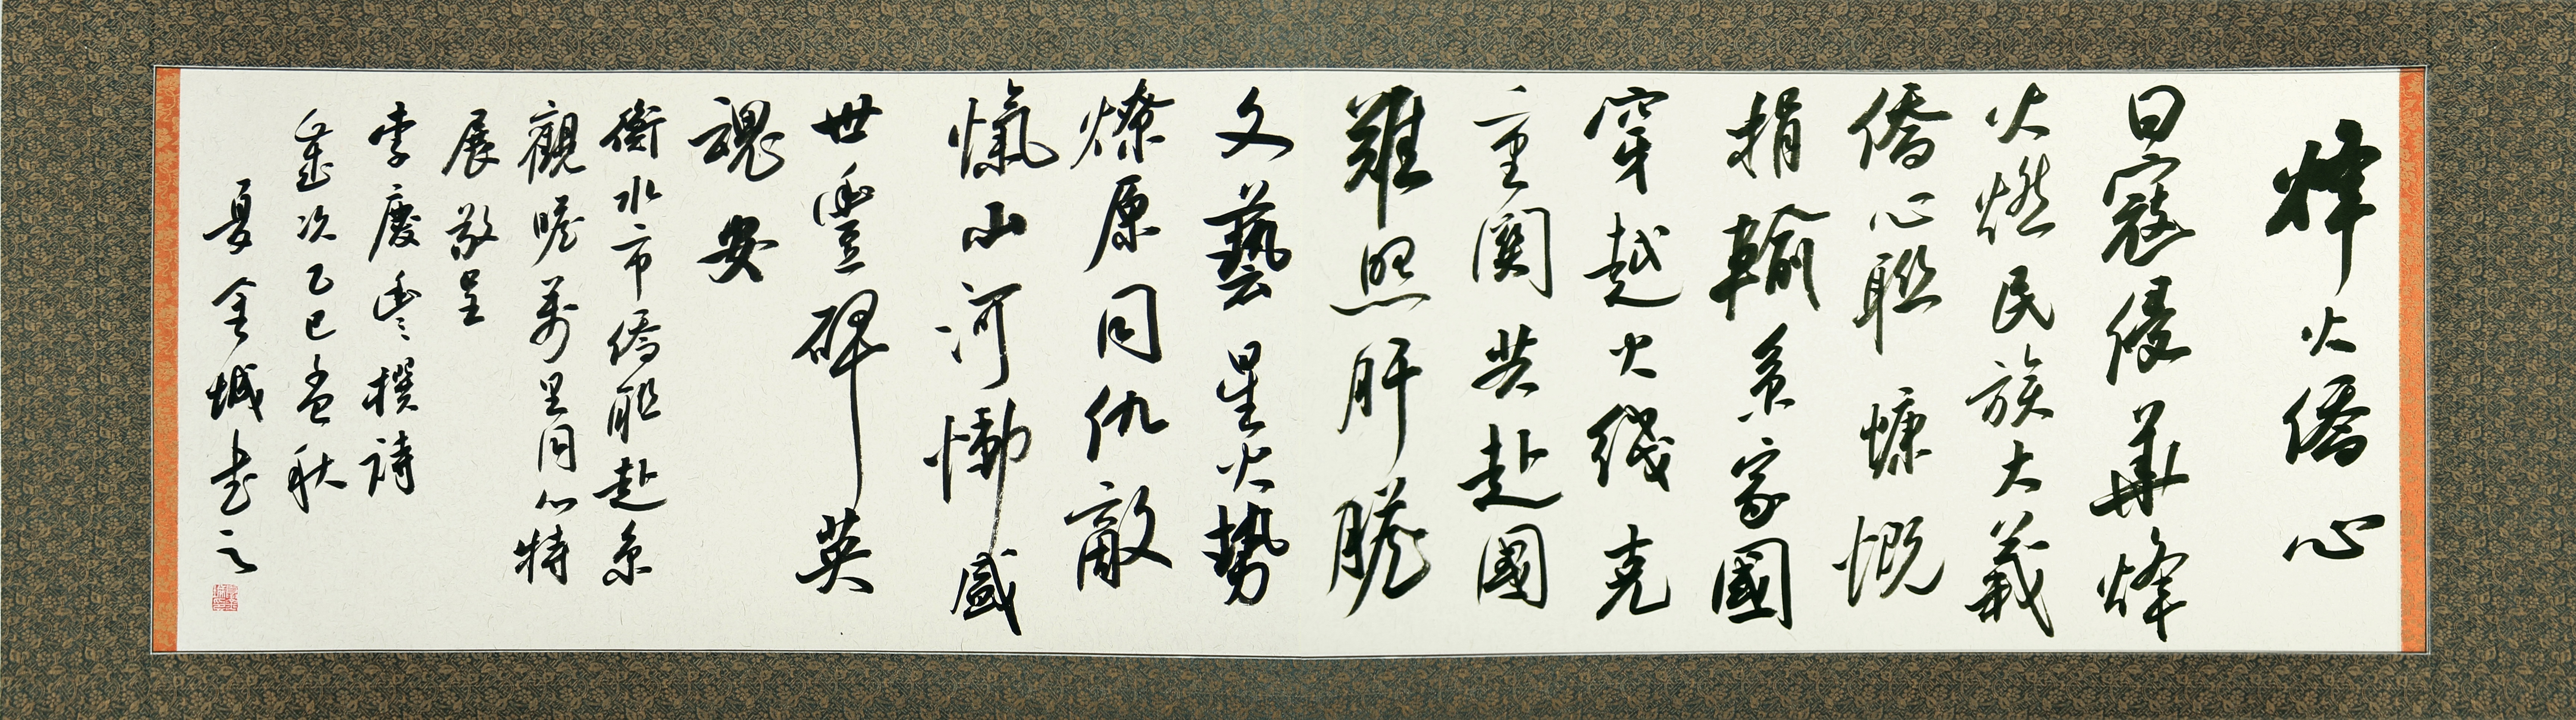 烽火僑心
日寇侵華烽
火燃民族大義
僑心聯慷慨
捐輸系家國
穿越火綫克
重関共赴國
難照肝膽
文藝星火勢
燎原同仇敵
愾山河慟盛
世豐碑英
魂安
衡水市僑聯赴京
觀瞻萬里同心特
展敬呈
李慶豐撰詩
歲次乙巳孟秋
夏金城書之